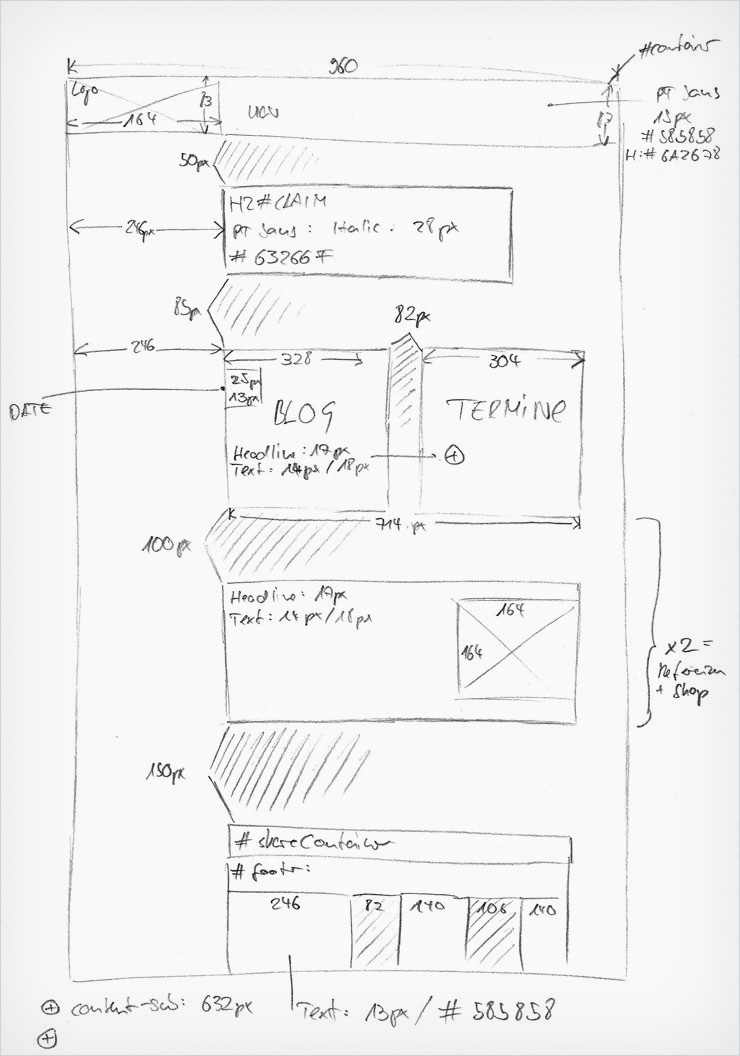 960
#container
Logo
83
164
nav
83
PT Sans
13px
#585858
H:#6A2678
50px
H2#CLAIM
PT Sans: Italic: 28px
#63266F
246px
85px
82px
246
328
304
DATE
25px
13px
BLOG
TERMINE
Headline: 17px
Text: 14px/18px
714 px
100px
Headline: 17px
Text: 14px/18px
164
164
x2 =
Referenzen
+ Shop
150px
#shareContainer
#footer:
246
82
140
106
140
content-sub: 632px
Text: 13px / #585858